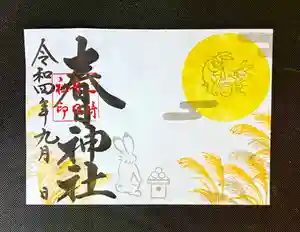 春日神社
令和四年九月 日